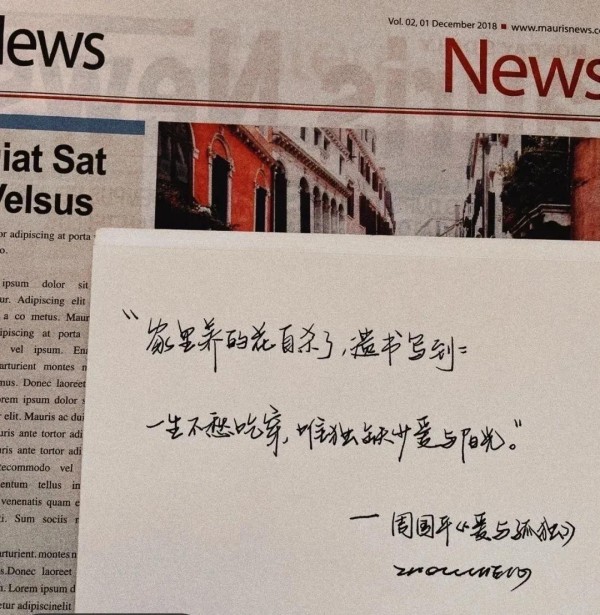 News
Vol. 02, 01 December 2018 ■ www.maurisnews.co
News
iat Sat
Velsus
or adipiscing at porta
o.
ipsum dolor sit
ur. Adipiscing elit
a co metus. Maur
ipiscing at porta
vel ipsum. En
arturient montes n
mus. Donec laoreet
orem ipsum dolor s
r elit. Mauris ac dui
uris ante tortor adi
uris ante tortor adi
ecommodo vel
entum tellus in
venenatis quam e
i. Sum sociis n
arturient. montes n
s.Donec laoreet
s. Lorem ipsum d
etur adipiscinelit
“家里养的花自杀了,遗书写到:
一生不愁吃穿,唯独缺少爱与阳光。”
一周国平《爱与孤独》